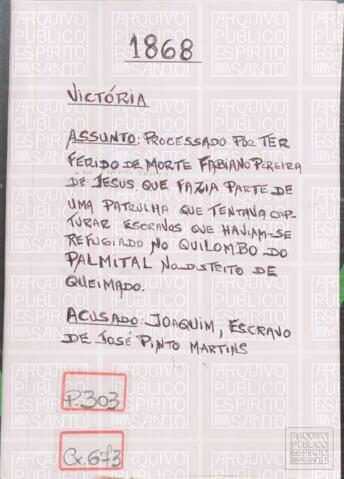 1868
VICTÓRIA
ASSUNTO: PROCESSADO POR TER
FERIDO DE MORTE FABIANO PEREIRA
DE JESUS QUE FAZIA PARTE DE
UMA PATRULHA QUE TENTAVA CAP-
TURAR ESCRAVOS QUE HAVIAM-SE
REFUGIADO NO QUILOMBO DO
PALMITAL NO DISTRITO DE
QUEIMADO.
ACUSADO: JOAQUIM, ESCRAVO
DE JOSÉ PINTO MARTINS
P.303
Cx.673
ARQUIVO
PÚBLICO
ESPÍRITO
SANTO